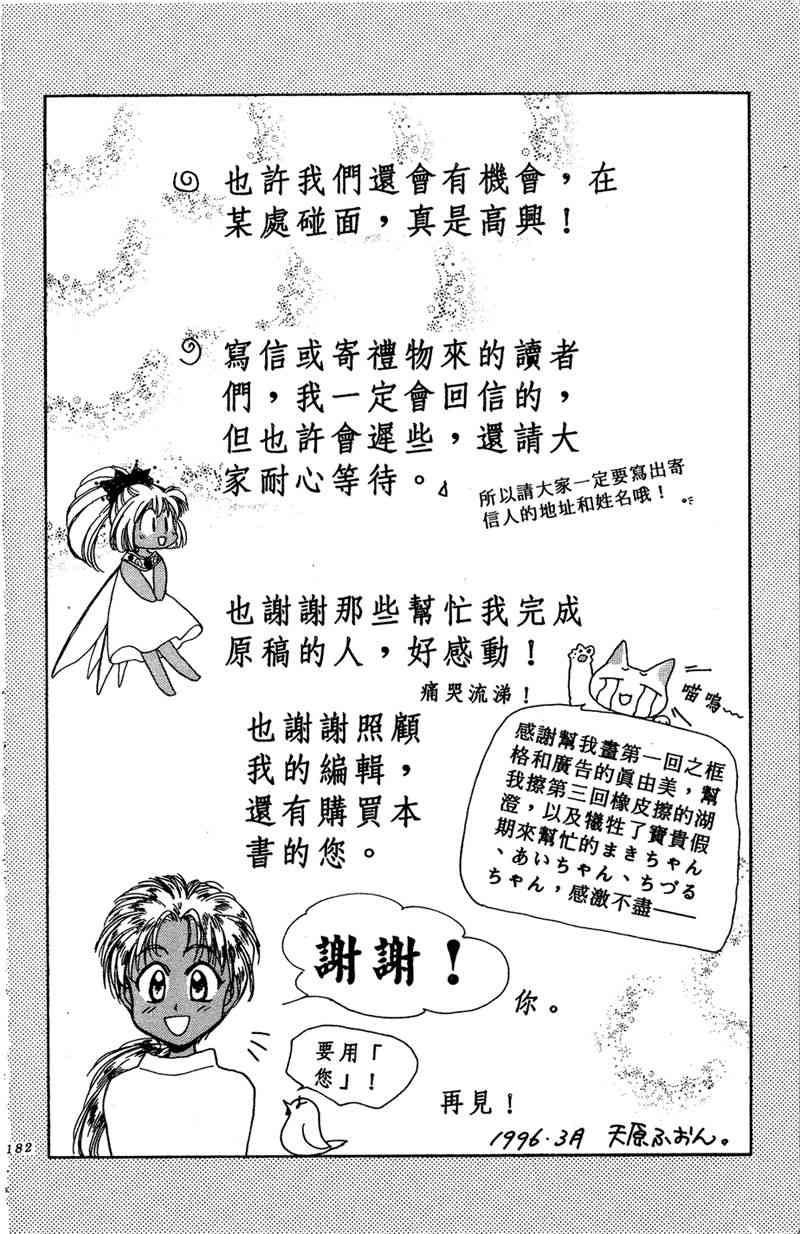 也許我們還會有機會，在
某處碰面，真是高興！
寫信或寄禮物來的讀者
們，我一定會回信的，
但也許會遲些，還請大
家耐心等待。
所以請大家一定要寫出寄
信人的地址和姓名哦！
也謝謝那些幫忙我完成
原稿的人，好感動！
痛哭流涕！
喵嗚～
也謝謝照顧
我的編輯，
還有購買本
書的您。
感謝幫我畫第一回之框
格和廣告的眞由美，幫
我擦第三回橡皮擦的湖
澄，以及犧牲了寶貴假
期來幫忙的まきちゃん
、あいちゃん、ちづる
ちゃん，感激不盡——
謝謝！
你。
要用「
您」！
再見！
1996.3月 天原ふおん。
182